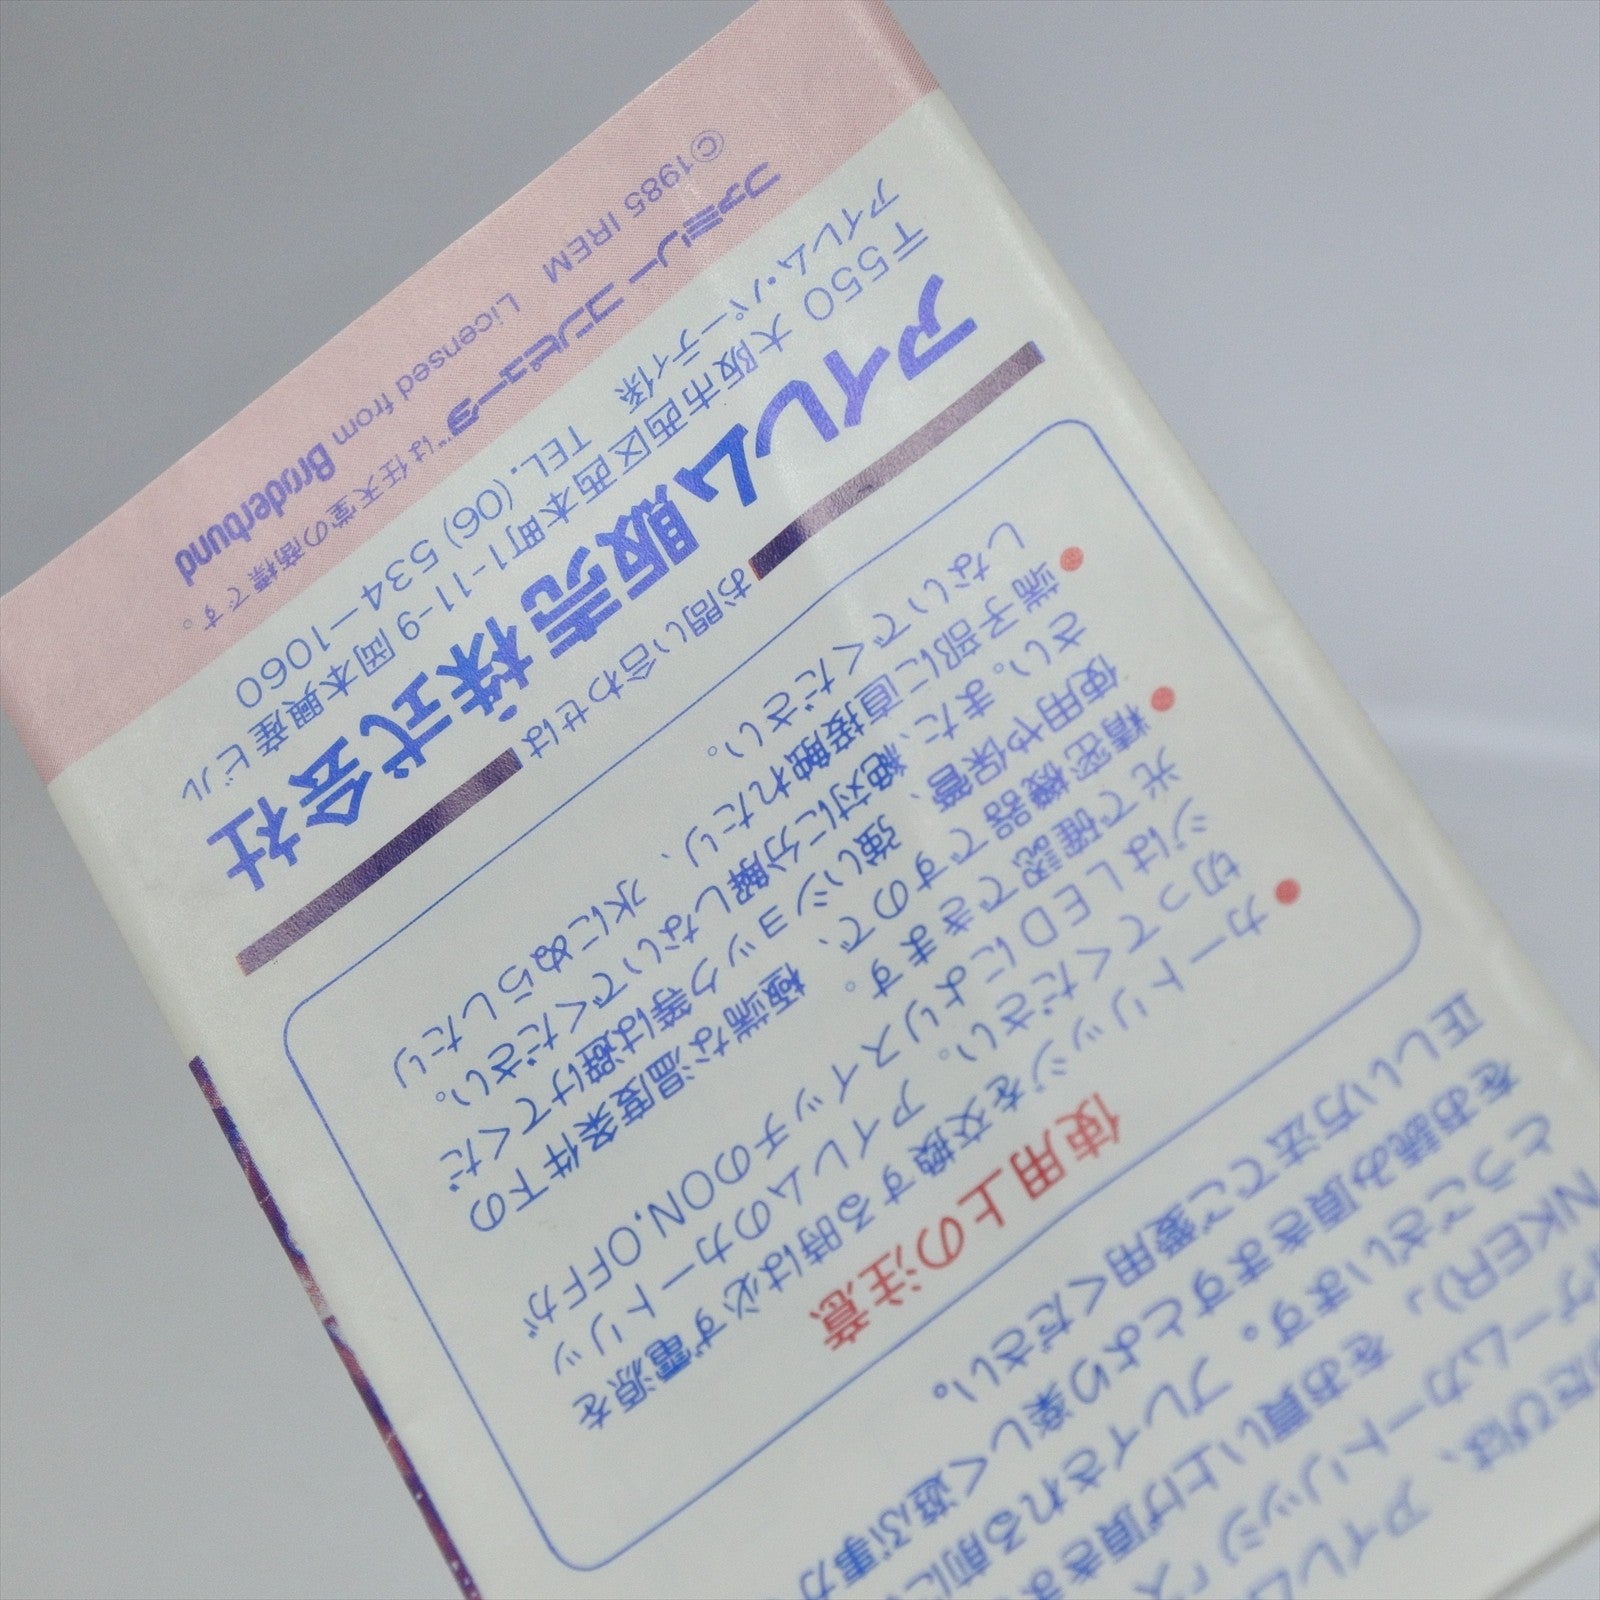 このたびは、アイレム
ゲームカートリッジ「ス
NKER)」をお買い上げ頂きま
とうございます。プレイされる前に
をお読み頂きますとより楽しく遊ぶ事が
正しい方法でご愛用ください。
使用上の注意
●カートリッジを交換する時は必ず電源を
切ってください。アイレムのカートリッ
ジはLEDによりスイッチのON,OFFが
光で確認できます。
●精密機器ですので、極端な温度条件下の
使用や保管、強いショック等は避けてくだ
さい。また、絶対に分解しないでください。
●端子部に直接触れたり、水にぬらしたり
しないでください。
お問い合わせは
アイレム販売株式会社
〒550 大阪市西区西本町1-11-9岡本興産ビル
アイレム・パーティ係 TEL.(06)534-1060
ファミリーコンピュータ™は任天堂の商標です。
©1985 IREM Licensed from Brøderbund